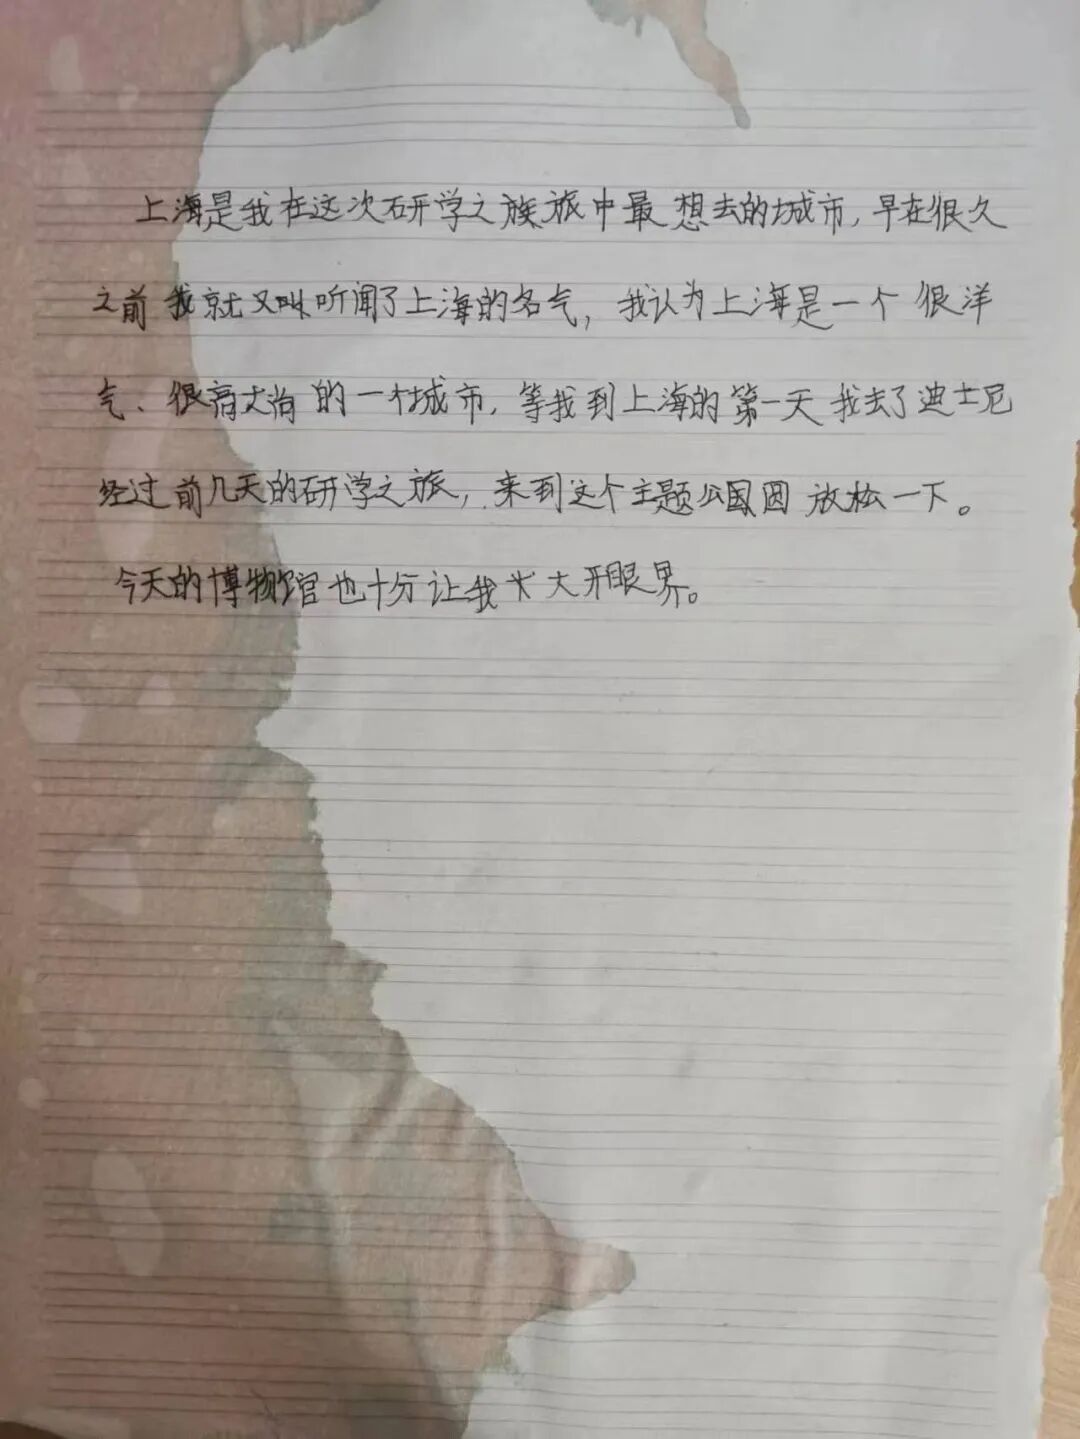 上海是我在这次研学之族旅中最想去的城市,早在很久
之前我就又叫听闻了上海的名气,我认为上海是一个很洋
气、很高大尚的一村城市,等我到上海的第一天我去了迪士尼
经过前几天的研学之旅,来到这个主题公园圆放松一下。
今天的博物馆也十分让我大大开眼界。